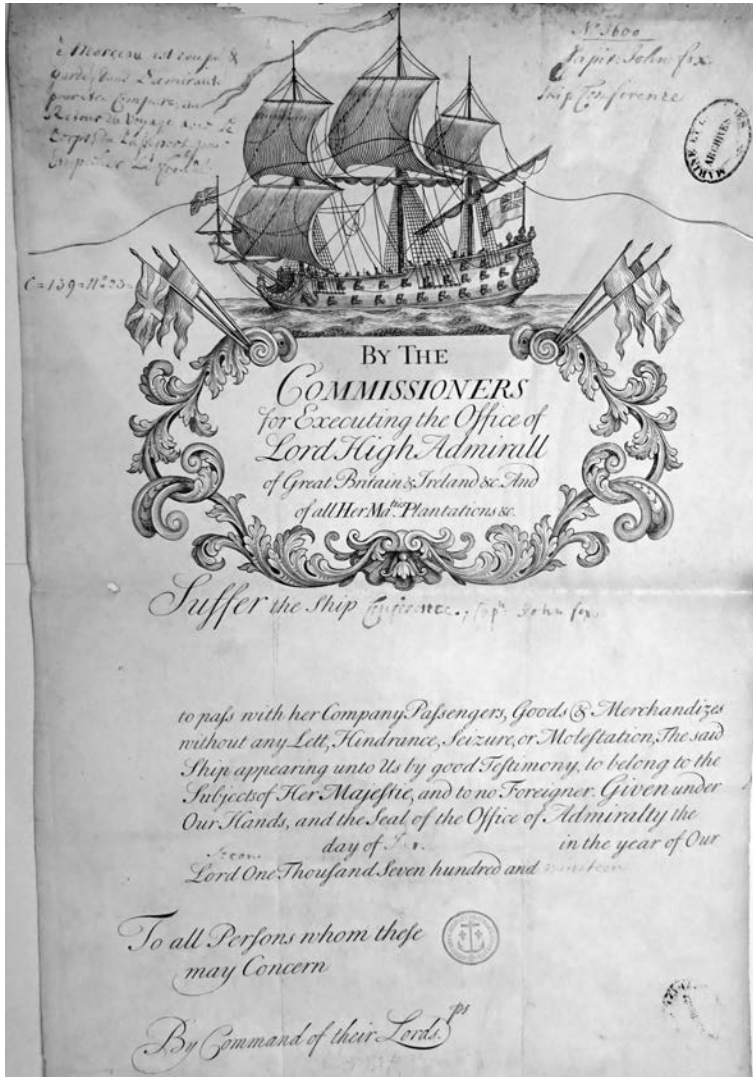 è Morceau est coupé &
gardé dans L'amirauté
pour être Comparé, au
Retour du Voyage avec Le
Corps du Passeport, pour
Empecher La fraude
N.º 3600
Capir: John fox.
Ship Conference
MARINE ET
ARCHIVES
C=139=N.º 23=
BY THE
COMMISSIONERS
for Executing the Office of
Lord High Admirall
of Great Britain & Ireland &c. And
of all Her Ma.ties Plantations &c.
Suffer the Ship Conference., Cap.n John fox.
to paſs with her Company Paſsengers, Goods & Merchandizes
without any Lett, Hindrance, Seizure, or Moleſtation, The said
Ship appearing unto Us by good Teſtimony, to belong to the
Subjects of Her Majeſtie, and to no Foreigner. Given under
Our Hands, and the Seal of the Office of Admiralty the
day of in the year of Our
Lord One Thouſand Seven hundred and nineteen
To all Perſons whom theſe
may Concern
By Command of their Lords.ps